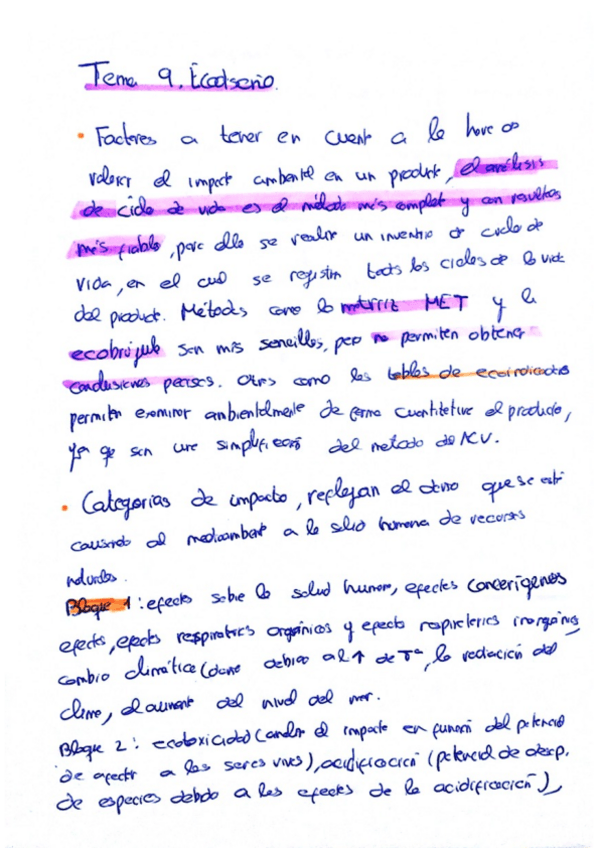 Tema 9. Ecodiseño.
• Factores a tener en cuenta a la hora de
valorar el impacto ambiental en un producto, el análisis
de ciclo de vida es el método más completo y con resultados
más fiables, para ello se realiza un inventario de ciclo de
vida, en el cual se registran todos los ciclos de la vida
del producto. Métodos como la matriz MET y la
ecobrújula son más sencillos, pero no permiten obtener
conclusiones precisas. Otros como las tablas de ecoindicadores
permiten examinar ambientalmente de forma cuantitativa el producto,
ya que son una simplificación del metodo de ACV.
• Categorías de impacto, reflejan el daño que se está
causando al medioambiente a la salud humana de recursos
naturales.
Bloque 1: efectos sobre la salud humana, efectos cancerígenos
efectos, efectos respiratorios orgánicos y efectos respiratorios inorgánicos
cambio climático (daño debido al ↑ de Tª, la radiación del
clima, el aumento del nivel del mar.
Bloque 2: ecotoxicidad (analiza el impacto en función del potencial
de afectar a los seres vivos), acidificación (potencial de desap.
de especies debido a los efectos de la acidificación),